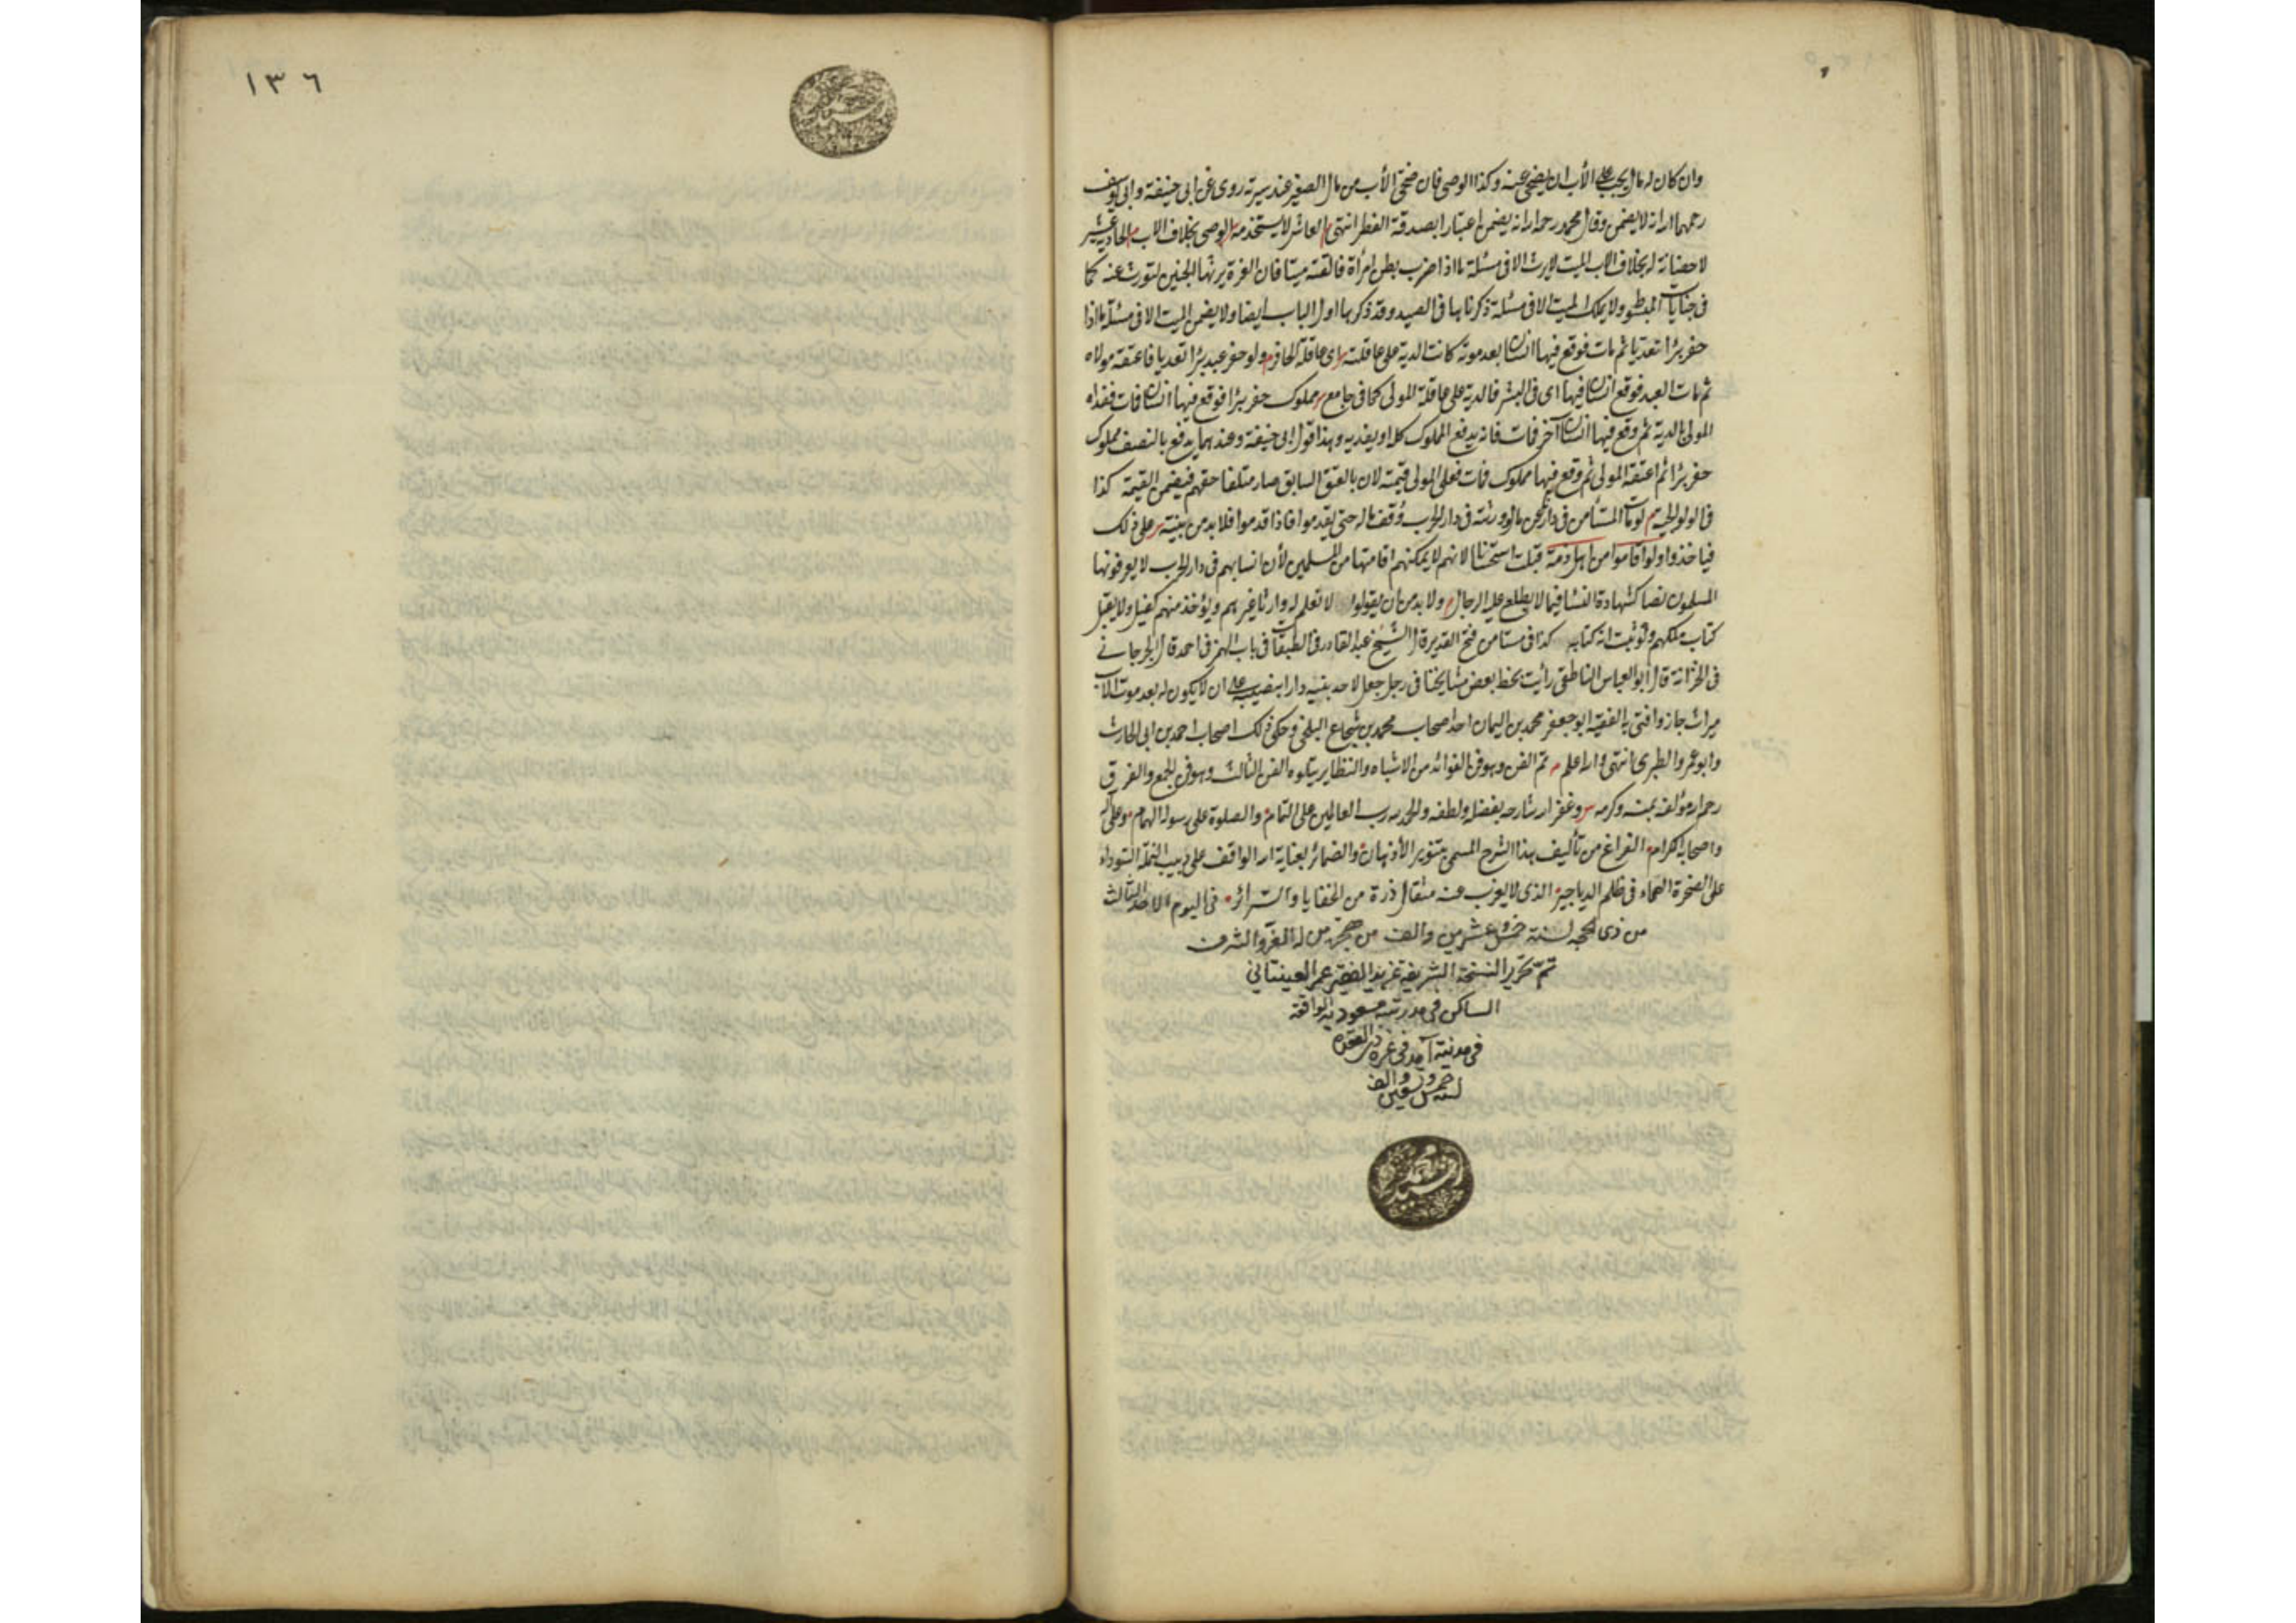 وان كان له مال يجب على الأب ان يضحى عنه وكذا الوصى فان ضحى الأب من مال الصغير عند يسرته روى عن ابى حنيفة وابى يوسف
رحمهما الله انه لا يضمن وقال محمد رحمه الله انه يضمن اعتبارا بصدقة الفطر انتهى العاشر لا يستخدمه الوصى بخلاف الاب الحادية عشر
لا حضانة له بخلاف الاب الميت لا يرث الا فى مسئلة ما اذا ضرب بطن امرأة فالقته ميتا فان الغرة يرثها الجنين لتورث عنه كما
فى جنايات المبسوط ولا يملك الميت الا فى مسئلة ذكرناها فى الصيد وقد ذكرها اول الباب ايضا ولا يضمن الميت الا فى مسئلة ما اذا
حفر بئرا تعديا ثم مات فوقع فيها انسان بعد موته كانت الدية على عاقلته اى عاقلة الحافر ولو حفر عبد بئرا تعديا فاعتقه مولاه
ثم مات العبد فوقع انسان فيها اى فى البئر فالدية على عاقلة المولى كما فى جامع مملوك حفر بئرا فوقع فيها انسان فمات ففداه
المولى بالدية ثم وقع فيها انسان آخر فمات فانه يدفع المملوك كله او يفديه وهذا قول ابى حنيفة وعندهما يدفع بالنصف مملوك
حفر بئرا ثم اعتقه المولى ثم وقع فيها مملوك فمات فعلى المولى قيمته لان بالعتق السابق صار متلفا حقهم فيضمن القيمة كذا
فى الولوالجية لو مات المستأمن فى دار نحن بها وورثته فى دار الحرب وقف ماله حتى يقدموا فاذا قدموا فلا بد من بينة على ذلك
فياخذوا ولو اقاموا من اهل ذمة قبلت استحسانا لانهم لا يمكنهم اقامتها من المسلمين لأن انسابهم فى دار الحرب لا يعرفونها
المسلمون نصا كشهادة النساء فيما لا يطلع عليه الرجال ولا بد من ان يقولوا لا نعلم له وارثا غيرهم ويؤخذ منهم كفيل ولا يقبل
كتاب ملكهم ولو ثبت انه كتابه كذا فى مستأمن فتح القدير قال الشيخ عبد القادر فى الطبقات فى باب الهمز فى احمد قال الجرجانى
فى الخزانة قال أبو العباس الناطفى رأيت بخط بعض مشايخنا فى رجل جعل لاحد بنيه دارا بنصيبه على ان لا يكون له بعد موت الأب
ميراث جاز وافتى به الفقيه ابو جعفر محمد بن اليمان احد اصحاب محمد بن شجاع البلخى وحكى ذلك اصحاب احمد بن ابى الحارث
وابو عمرو الطبرى انتهى والله اعلم تم الفن وهو فن الفوائد من الاشباه والنظاير يتلوه الفن الثالث وهو فن الجمع والفرق
رحم الله مؤلفه بمنه وكرمه وغفر الله شارحه بفضله ولطفه والحمد لله رب العالمين على التمام والصلوة على رسوله الهمام وعلى آله
واصحابه الكرام الفراغ من تأليف هذا الشرح المسمى بتنوير الأذهان والضمائر بعناية الله الواقف على دبيب النملة السوداء
على الصخرة الصماء فى ظلم الدياجير الذى لا يعزب عنه مثقال ذرة من الخفايا والسرائر فى اليوم الاحد الثالث
من ذى الحجه لسنة خمس وعشرين والف من هجرة من له العز والشرف
تم تحرير النسخة الشريفة عن يد الفقير عمر العينتابى
الساكن فى مدرسة مسعودية الواقعة
فى مدينة آمد فى غرة ذى القعده
لسنه خمس وتسعين والف
١٣٦